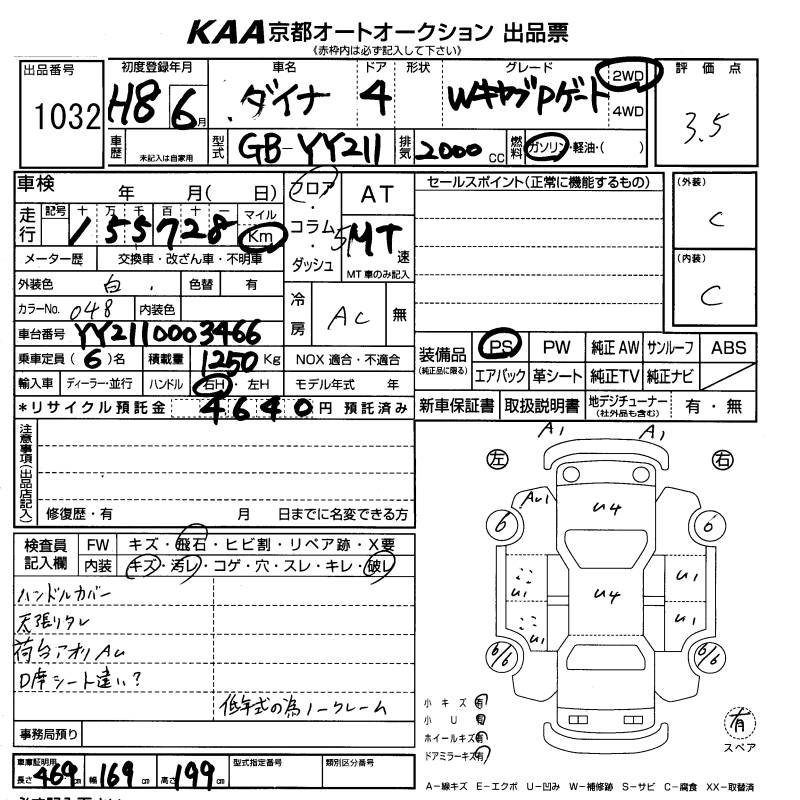 KAA 京都オートオークション 出品票
《赤枠内は必ず記入して下さい》
出品番号 1032
初度登録年月 H8 6月
車名 ダイナ
ドア 4
形状
グレード WキャブPゲート
2WD
4WD
評価点 3.5
車歴 未記入は自家用
型式 GB-YY211
排気 2000 CC
燃料 ガソリン・軽油・( )
車検 年 月( 日)
走行 記号 十万千百十一 155728 マイル Km
メーター歴 交換車・改ざん車・不明車
外装色 白 色替 有
カラーNo. 048 内装色
車台番号 YY2110003466
乗車定員 (6)名 積載量 1250 Kg NOX 適合・不適合
輸入車 ディーラー・並行 ハンドル 右H・左H モデル年式 年
*リサイクル預託金 4640 円 預託済み
フロア・コラム・ダッシュ
AT
5MT 速
MT車のみ記入
冷房 AC 無
セールスポイント(正常に機能するもの)
(外装) C
(内装) C
装備品 (純正品に限る) PS PW 純正AW サンルーフ ABS
エアバック 革シート 純正TV 純正ナビ
新車保証書 取扱説明書 地デジチューナー (社外品も含む) 有・無
注意事項(出品店記入)
修復歴・有 月 日までに名変できる方
検査員記入欄 FW キズ・飛石・ヒビ割・リペア跡・X要
内装 キズ・汚レ・コゲ・穴・スレ・キレ・破レ
ハンドルカバー
天張りタレ
荷台アオリ AU
D席シート違い?
低年式の為ノークレーム
事務局預り
車庫証明用 長さ 469 cm 幅 169 cm 高さ 199 cm 型式指定番号 類別区分番号
A1 A1
左 右
AU1 U4
6 6
U1 U4 U1
U1 U1
6/6 6/6
小キズ 有
小U 有
ホイールキズ 有
ドアミラーキズ 有
有
スペア
A-線キズ E-エクボ U-凹み W-補修跡 S-サビ C-腐食 XX-取替済
必ず記入下さい